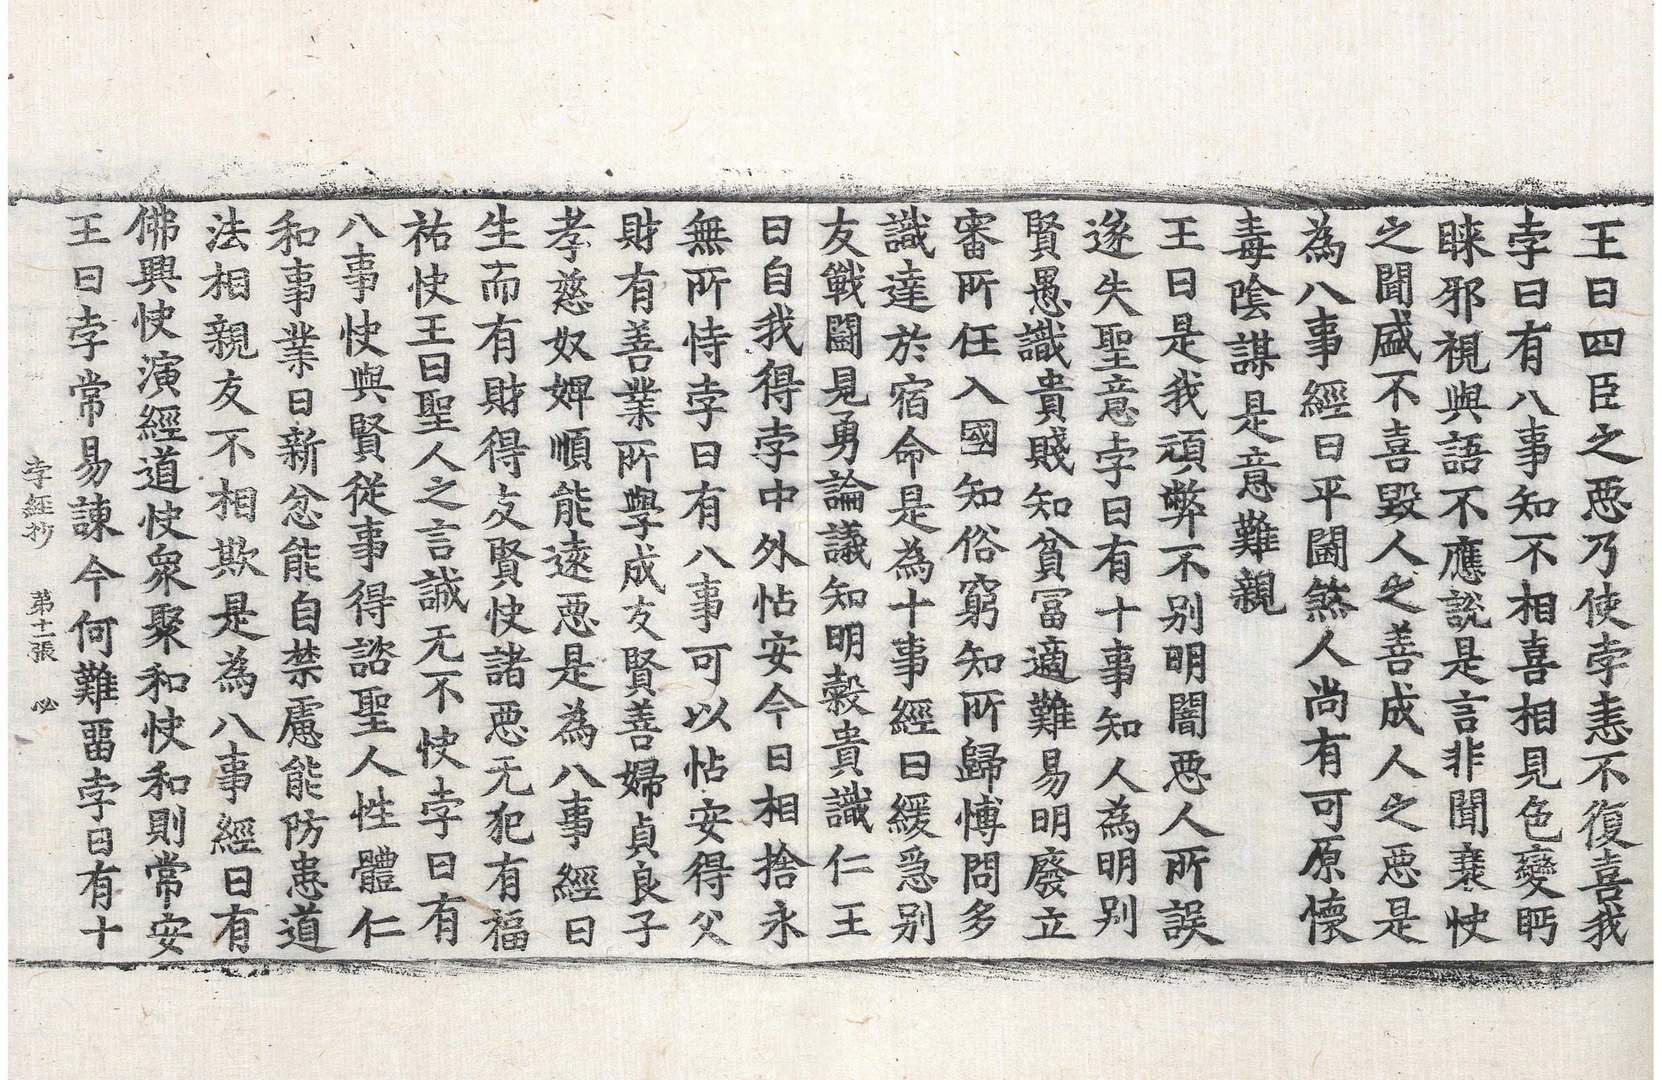 王曰四臣之惡乃使孛恚不復喜我
孛曰有八事知不相喜相見色變眄
睞邪視與語不應說是言非聞衰快
之聞盛不喜毀人之善成人之惡是
為八事經曰平鬪煞人尚有可原懷
毒陰謀是意難親
王曰是我頑弊不別明闇惡人所誤
遂失聖意孛曰有十事知人為明別
賢愚識貴賤知貧冨適難易明廢立
審所任入國知俗窮知所歸博問多
識達於宿命是為十事經曰緩急別
友戰鬪見勇論議知明榖貴識仁王
曰自我得孛中外怗安今日相捨永
無所恃孛曰有八事可以怗安得父
財有善業所學成友賢善婦貞良子
孝慈奴婢順能遠惡是為八事經曰
生而有財得友賢快諸惡无犯有福
祐快王曰聖人之言誠无不快孛曰有
八事快與賢從事得諮聖人性體仁
和事業日新忿能自禁慮能防患道
法相親友不相欺是為八事經曰有
佛興快演經道快衆聚和快和則常安
王曰孛常易諫今何難畱孛曰有十
孛經抄 第十一張 必